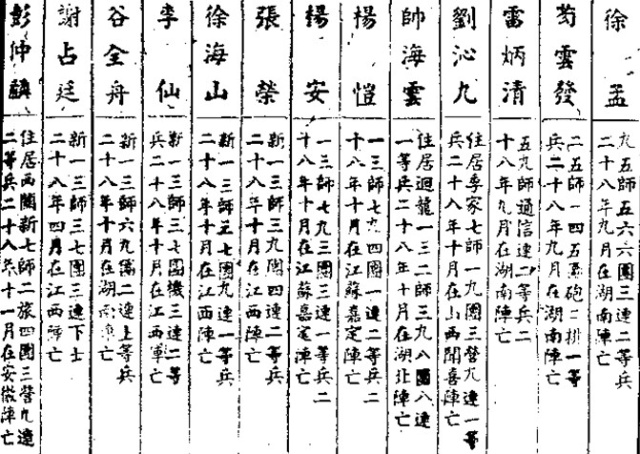 徐孟
九五師五六六團三連二等兵
二十八年九月在湖南陣亡
苟雲發
二五師一四五團砲二排一等
兵二十八年九月在湖南陣亡
雷炳清
五九師通信連二等兵二
十八年九月在湖南陣亡
劉沁九
住居李家七師一九團三營九連一等
兵二十八年十月在山西聞喜陣亡
帥海雲
住居迴龍一三二師三九八團八連
一等兵二十八年十月在湖北陣亡
楊愷
一三師七九四團一連二等兵二
十八年十月在江蘇嘉定陣亡
楊安
一三師七九三團三連一等兵二
十八年十月在江蘇嘉定陣亡
張榮
新一三師三九團四連二等兵
二十八年十月在江西陣亡
徐海山
新一三師三七團九連一等兵
二十八年十月在江西陣亡
李仙
新一三師三七團機三連二等
兵二十八年十月在江西陣亡
谷全舟
新一三師六九團二連上等兵
二十八年十月在湖南陣亡
謝占廷
新一三師三七團三連下士
二十八年四月在江西陣亡
彭仲麟
住居西關新七師二旅四團三營九連
二等兵二十八年十一月在安徽陣亡